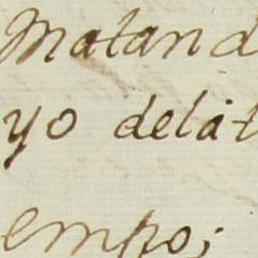 Matand
yo delat
empo;